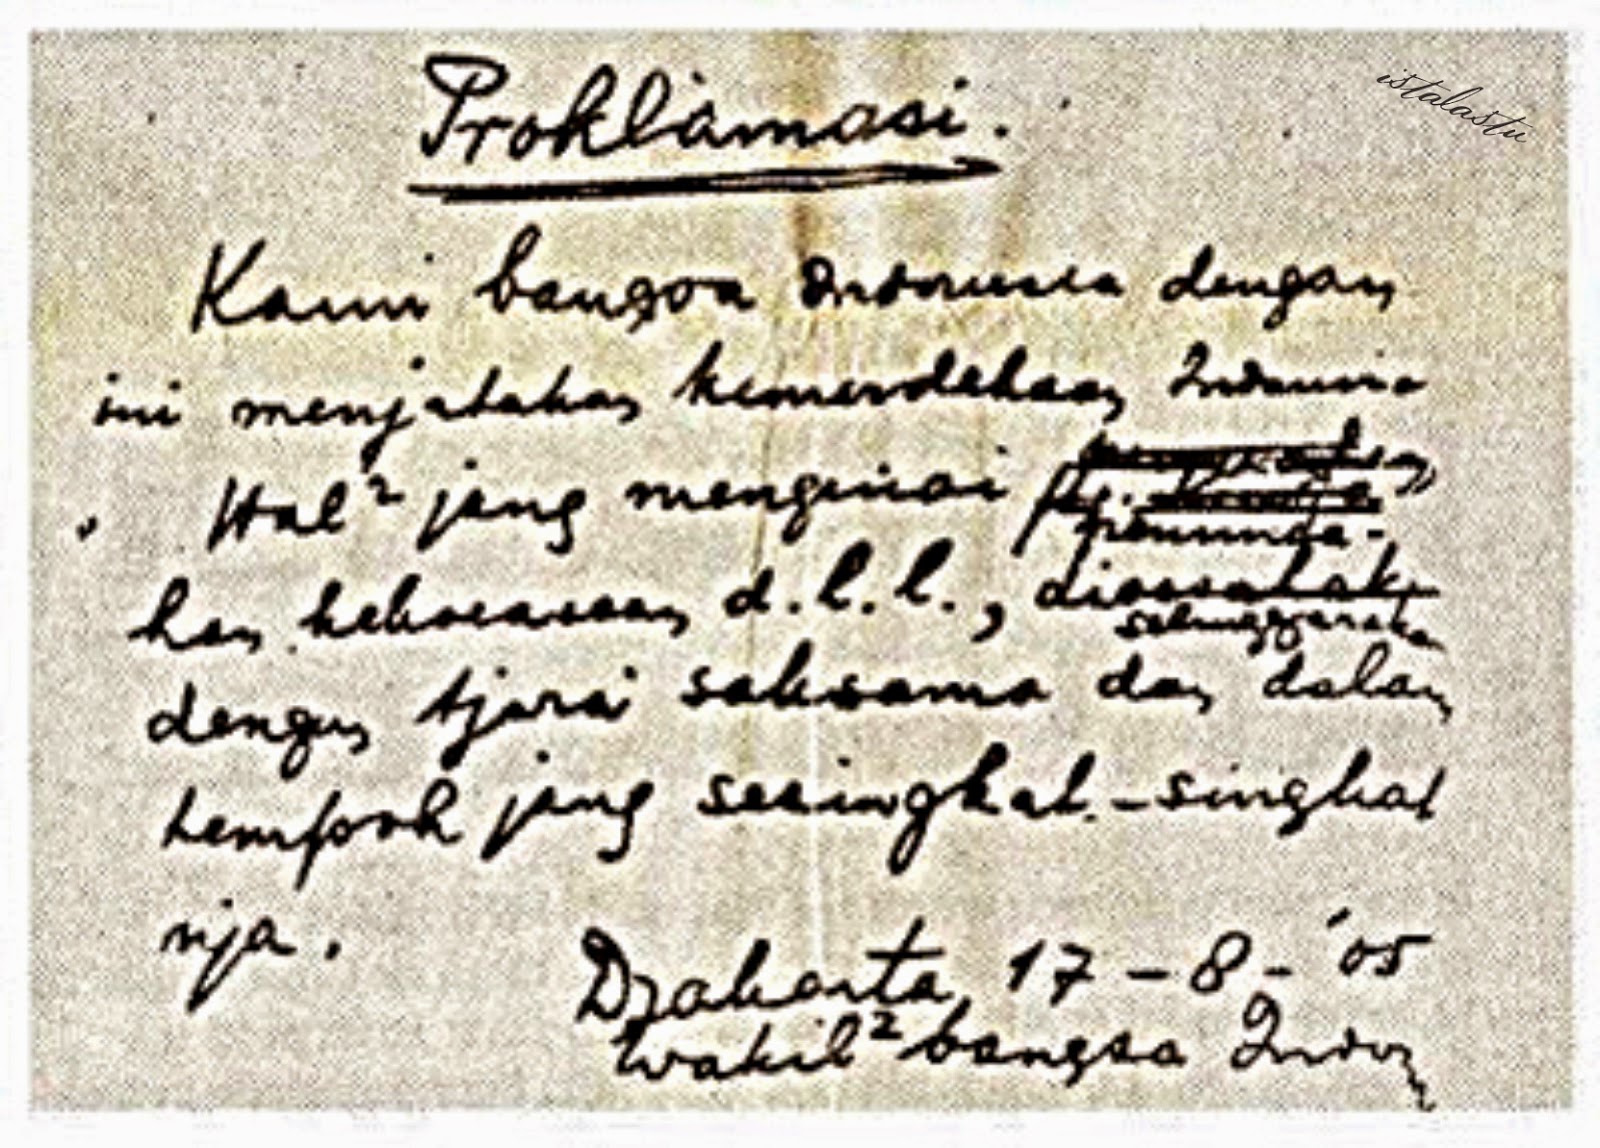 istalastu
Proklamasi.
Kami bangsa Indonesia dengan
ini menjatakan kemerdekaan Indonesia
Hal² jang mengenai
peminda-
han kekoeasaan d.l.l., dioesahak
selenggarakan
dengan tjara saksama dan dalam
tempoh jang sesingkat-singkat
nja.
Djakarta, 17 - 8 - '05
Wakil² bangsa Indon